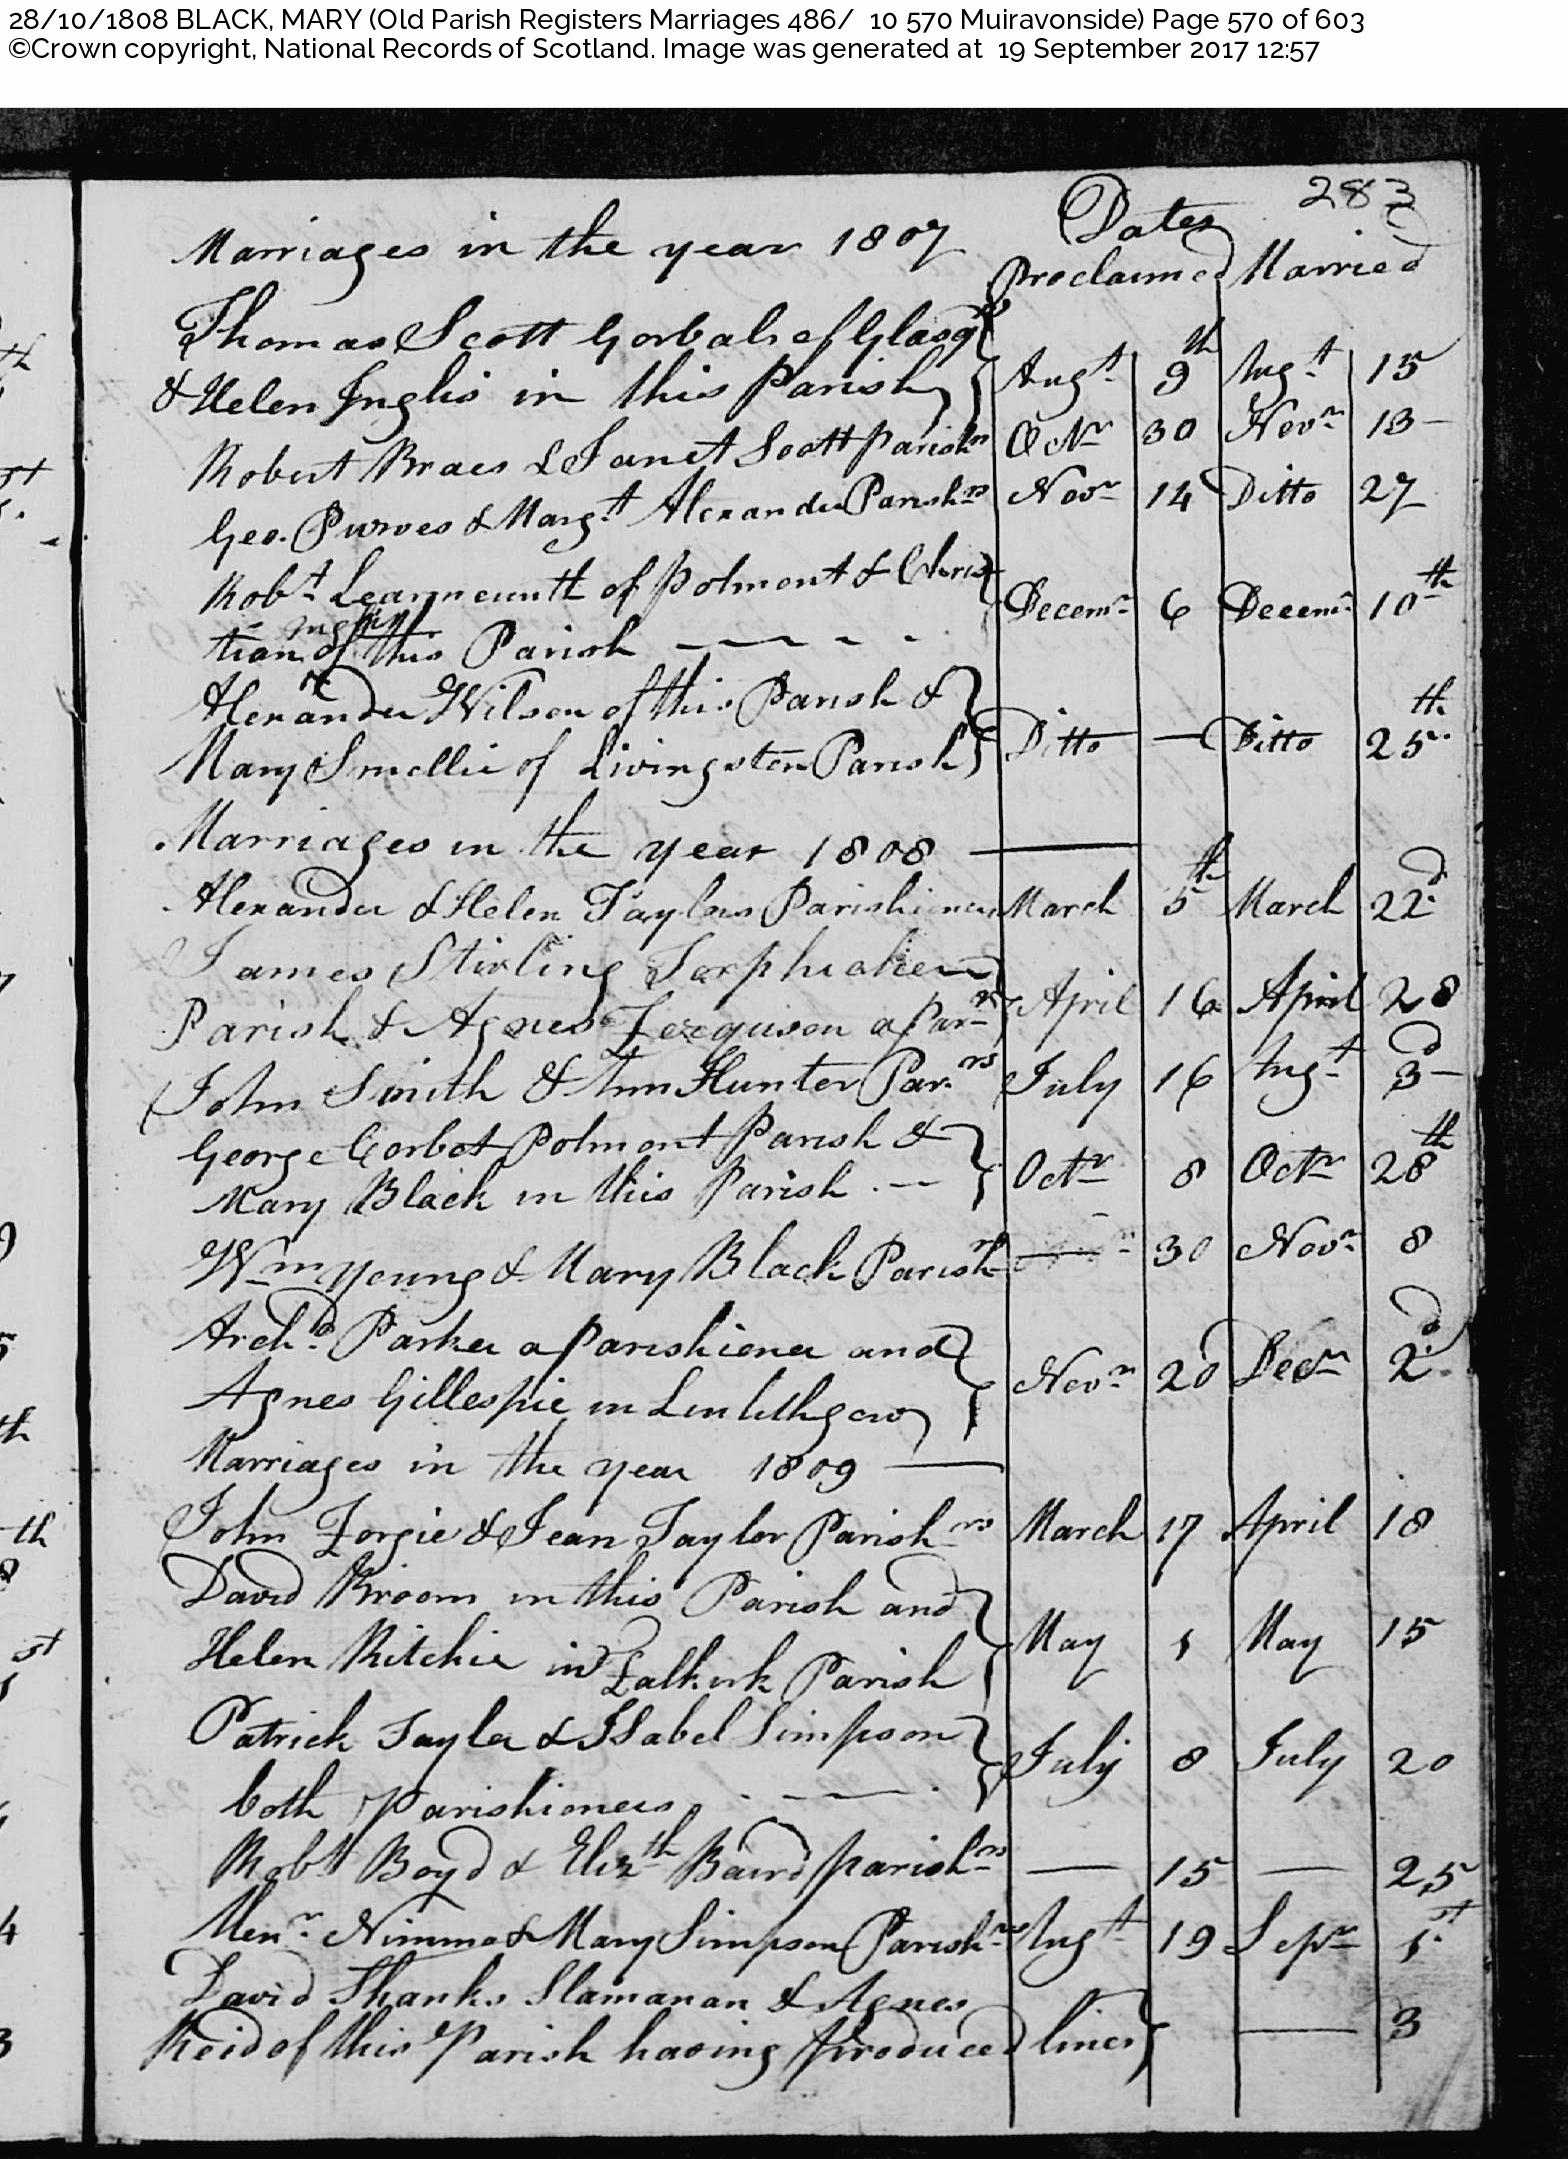 28/10/1808 BLACK, MARY (Old Parish Registers Marriages 486/ 10 570 Muiravonside) Page 570 of 603
©Crown copyright, National Records of Scotland. Image was generated at 19 September 2017 12:57
283
Marriages in the year 1807 Dates
Proclaimed Married
Thomas Scott Gorbals of Glasgw
& Helen Inglis in this Parish Augt 9th Augt 15
Robert Braes & Janet Scott parishrs Octr 30 Novr 13
Geo. Purves & Margt Alexander Parishrs Novr 14 Ditto 27
Robt Learmounth of Polmont & Chris
tian of this Parish Decemr 6 Decemr 10th
Alexander Wilson of this Parish &
Mary Smellie of Livingston Parish Ditto — Ditto 25th
Marriages in the year 1808 —
Alexander & Helen Taylors Parishioners March 5th March 22d
James Stirling Torphichen
Parish & Agnes Ferguson a Parr April 16 April 28
John Smith & Ann Hunter Parrs July 16 Augt 3d
George Corbet Polmont Parish &
Mary Black in this Parish . — Octr 8 Octr 28th
Wm Young & Mary Black Parishrs — 30 Novr 8
Archd Parker a parishioner and
Agnes Gillespie in Linlithgow Novr 20 Decr 2d
Marriages in the year 1809 —
John Forgie & Jean Taylor Parishrs March 17 April 18
David Broom in this Parish and
Helen Ritchie in Falkirk Parish May 1 May 15
Patrick Tayler & Isabel Simpson
both Parishioners July 8 July 20
Robt Boyd & Elizth Baird parishrs — 15 — 25
Alexr Nimmo & Mary Simpson Parishrs Augt 19 Sepr 1st
David Shanks Slamanan & Agnes
Reid of this Parish having produced lines — 3